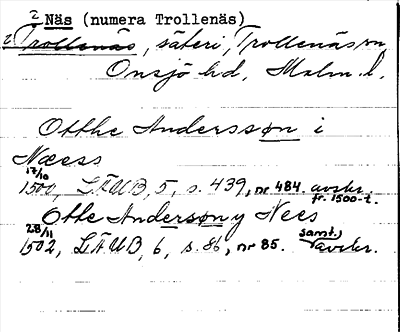 2 Näs (numera Trollenäs)
2 Trollenäs, säteri, Trollenäs sn,
Onsjö hd, Malm. l.
Otthe Anderssøn i
Næess
17/10
1500, LÄUB, 5, s. 439, nr 484. avskr.
fr. 1500-t.
Otte Anderssøn y Nees
28/11
1502, LÄUB, 6, s. 86, nr 85. samt. avskr.